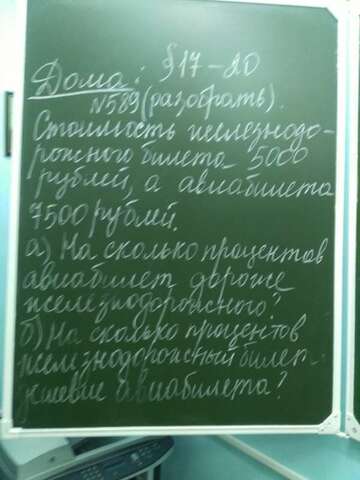 Дома: § 17-20
№589(разобрать).
Стоимость железнодо-
рожного билета 5000
рублей, а авиабилета
7500 рублей.
а) На сколько процентов
авиабилет дороже
железнодорожного?
б) На сколько процентов
железнодорожный билет
дешевле авиабилета?